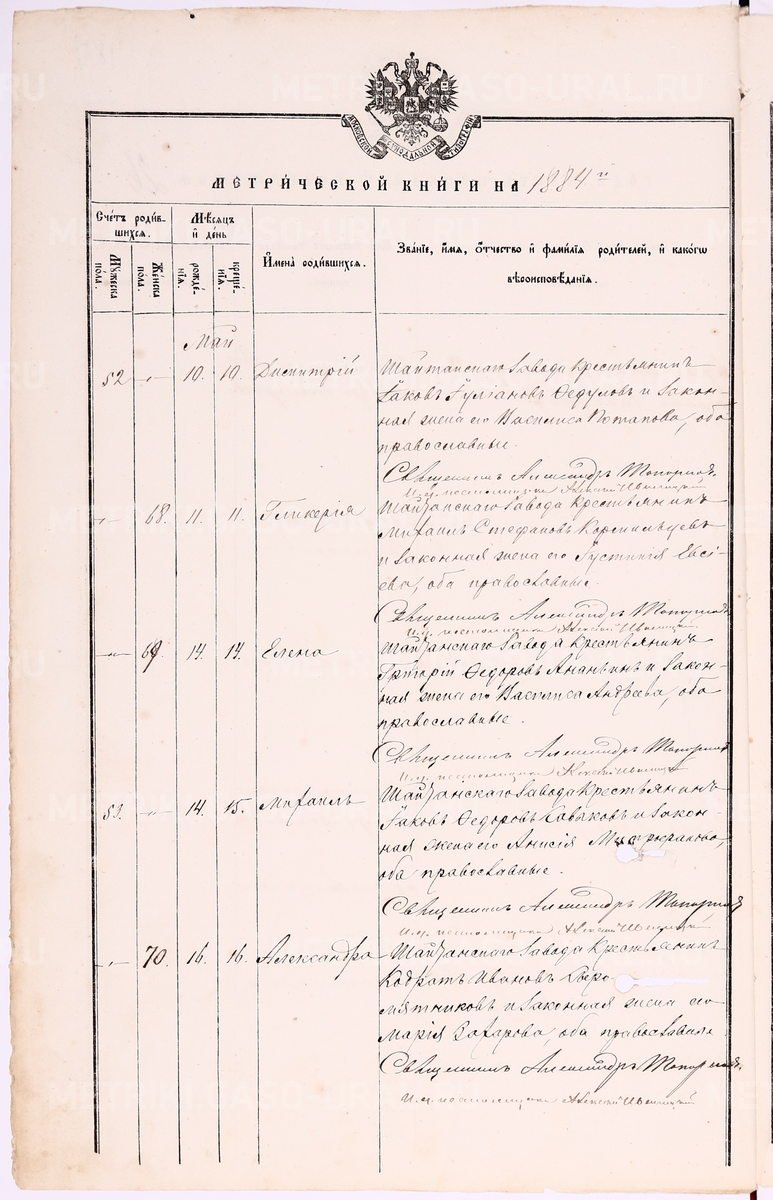 МЕТРИ́ЧЕСКОЙ КНИ́ГИ НА 1884 й
Счетъ роди́вшихся.
Мѣсяцъ и́ де́нь
И҆мена̀ родившихся.
Зва́нїе, и҆́мя, ѻ҆́тчество и҆ фами́лїя роди́телей, и҆ како́гѡ
вѣроисповѣ́данїя.
Мꙋ́жеска по́ла.
Же́нска по́ла.
рожде́нїя.
креще́нїя.
Май
52 " 10. 10. Димитрій
Шайтанскаго завода крестьянинъ
Іаковъ Іуліановъ Ѳедуловъ и закон-
ная жена его Василиса Потапова, оба
православные.
Священникъ Александръ Топорковъ.
И. д. псаломщика Алексій
" 68. 11. 11. Гликерія
Шайтанскаго завода крестьянинъ
Михаилъ Стефановъ Корсильцевъ
и законная жена его Іустинія Евсі-
ева, оба православные.
Священникъ Александръ Топорковъ
И. д. псаломщика Алексій
" 69. 14. 14. Елена
Шайтанскаго завода крестьянинъ
Григорій Ѳедоровъ Ананьинъ и закон-
ная жена его Василиса Андреева, оба
православные.
Священникъ Александръ Топорковъ
И. д. псаломщика Алексій
53. " 14. 15. Михаилъ
Шайтанскаго завода крестьянинъ
Іаковъ Ѳедоровъ Каваковъ и закон-
ная жена его Анисія Митрофанова,
оба православные.
Священникъ Александръ Топорковъ
И. д. псаломщика Алексій
" 70. 16. 16. Александра
Шайтанскаго завода крестьянинъ
Кодратъ Ивановъ Сыро-
мятниковъ и законная жена его
Марія Захарова, оба православные
Священникъ Александръ Топорковъ.
И. д. псаломщика Алексій